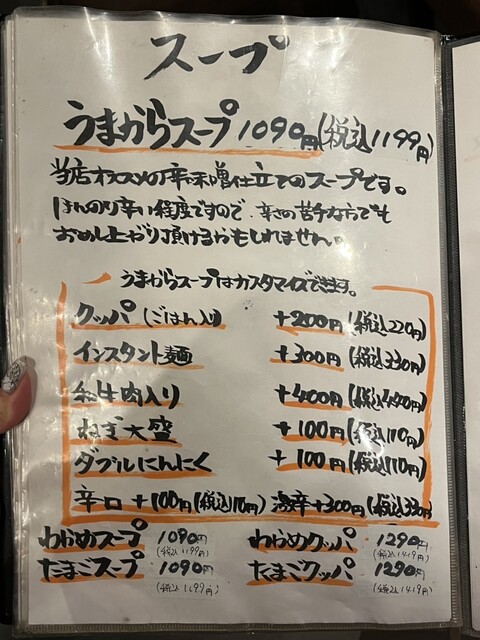 スープ
うまからスープ 1090円(税込1199円)
当店オススメの辛味噌仕立てのスープです。
ほんのり辛い程度ですので、辛さの苦手な方でも
おめし上がり頂けるかもしれません。
うまからスープはカスタマイズできます。
クッパ(ごはん入り) +200円(税込220円)
インスタント麺 +300円(税込330円)
和牛肉入り +400円(税込440円)
ねぎ大盛 +100円(税込110円)
ダブルにんにく +100円(税込110円)
辛口 +100円(税込110円) 激辛+300円(税込330円)
わかめスープ 1090円(税込1199円) わかめクッパ 1290円(税込1419円)
たまごスープ 1090円(税込1199円) たまごクッパ 1290円(税込1419円)